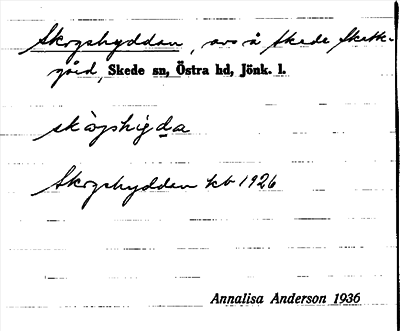 Skogshyddan, avs å Skede Skatte-
gård, Skede sn, Östra hd, Jönk. l.
skògshigda
Skogshyddan kb 1926
Annalisa Anderson 1936